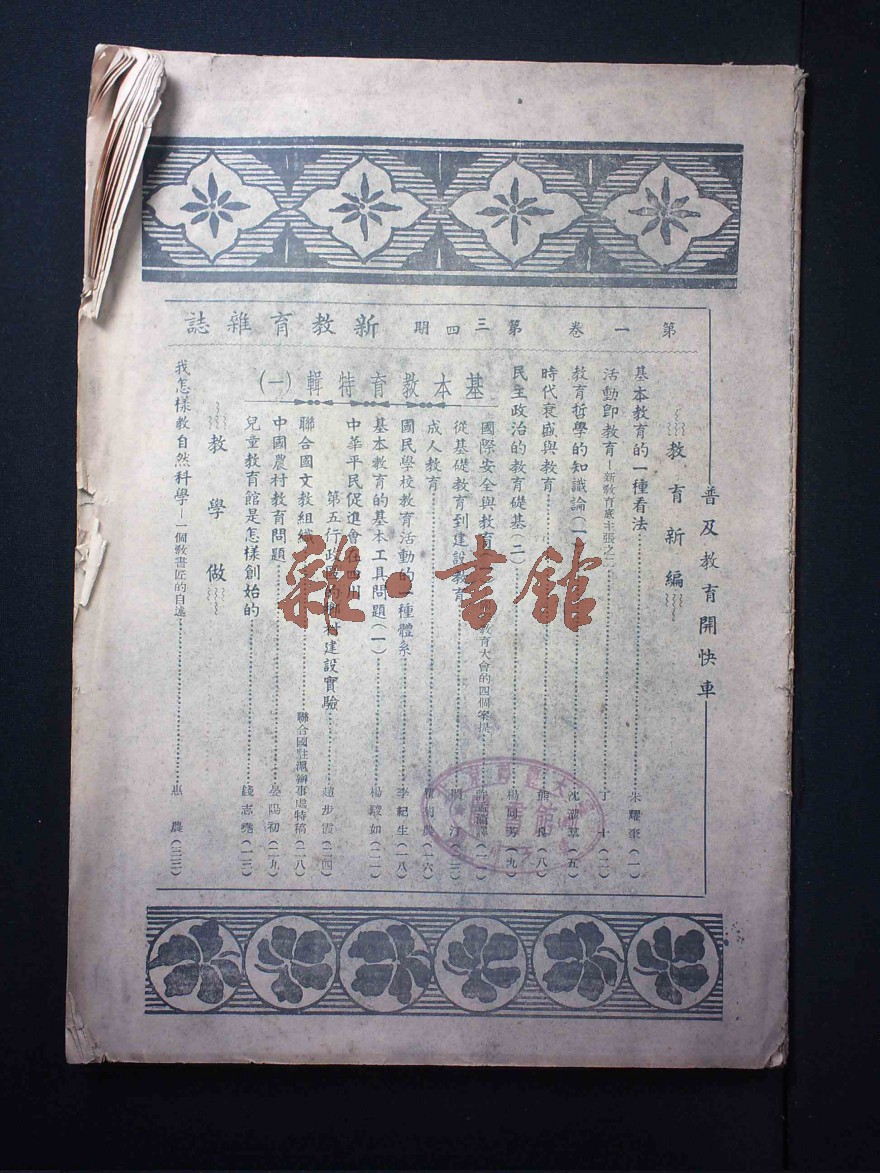 新教育雜誌
第一卷 第三四期
普及教育開快車
教育新編
基本教育的一種看法 朱耀 (一)
活動即教育—新教育底主張之一 丁十 (二)
教育哲學的知識論(一) 沈灌羣 (五)
時代衰盛與教育 (八)
民主政治的教育礎基(二) 楊同芳 (九)
基本教育特輯(一)
國際安全與教育 教育大會的四個案
從基礎教育到建設教育
成人教育 (一六)
國民學校教育活動的一種體系 李紀生 (一八)
基本教育的基本工具問題(一) 楊駿如 (二一)
中華平民促進會在四川
第五行政區的鄉村建設實驗 趙步霞 (二四)
聯合國文教組織 聯合國駐滬辦事處特稿 (二八)
中國農村教育問題 晏陽初 (二九)
兒童教育館是怎樣創始的 錢志堯
教學做
我怎樣教自然科學—一個教書匠的自述 惠農 (三三)
雜·書館